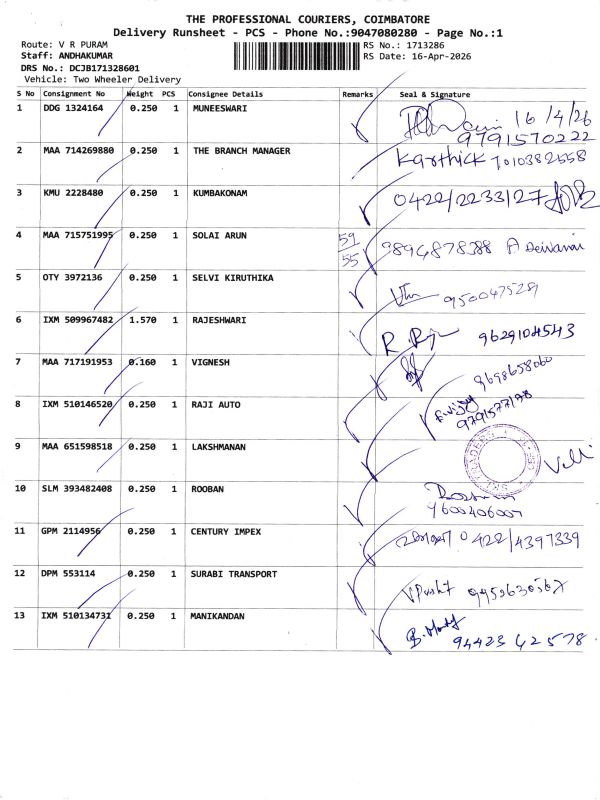 THE PROFESSIONAL COURIERS, COIMBATORE
Delivery Runsheet - PCS - Phone No.:9047080280 - Page No.:1
Route: V R PURAM
Staff: ANDHAKUMAR
DRS No.: DCJB171328601
Vehicle: Two Wheeler Delivery
RS No.: 1713286
RS Date: 16-Apr-2026
S No Consignment No Weight PCS Consignee Details Remarks Seal & Signature
1 DDG 1324164 0.250 1 MUNEESWARI 16/4/26
9791570222
2 MAA 714269880 0.250 1 THE BRANCH MANAGER Karthick 7010382558
3 KMU 2228480 0.250 1 KUMBAKONAM 0422/2233127
4 MAA 715751995 0.250 1 SOLAI ARUN 59 55 9894878388 A Deivanai
5 OTY 3972136 0.250 1 SELVI KIRUTHIKA
6 IXM 509967482 1.570 1 RAJESHWARI 9629104543
7 MAA 717191953 0.160 1 VIGNESH 9698658060
8 IXM 510146520 0.250 1 RAJI AUTO 9791577198
9 MAA 651598518 0.250 1 LAKSHMANAN
10 SLM 393482408 0.250 1 ROOBAN 9600406007
11 GPM 2114956 0.250 1 CENTURY IMPEX 0422/4397339
12 DPM 553114 0.250 1 SURABI TRANSPORT
13 IXM 510134731 0.250 1 MANIKANDAN 94423 42578